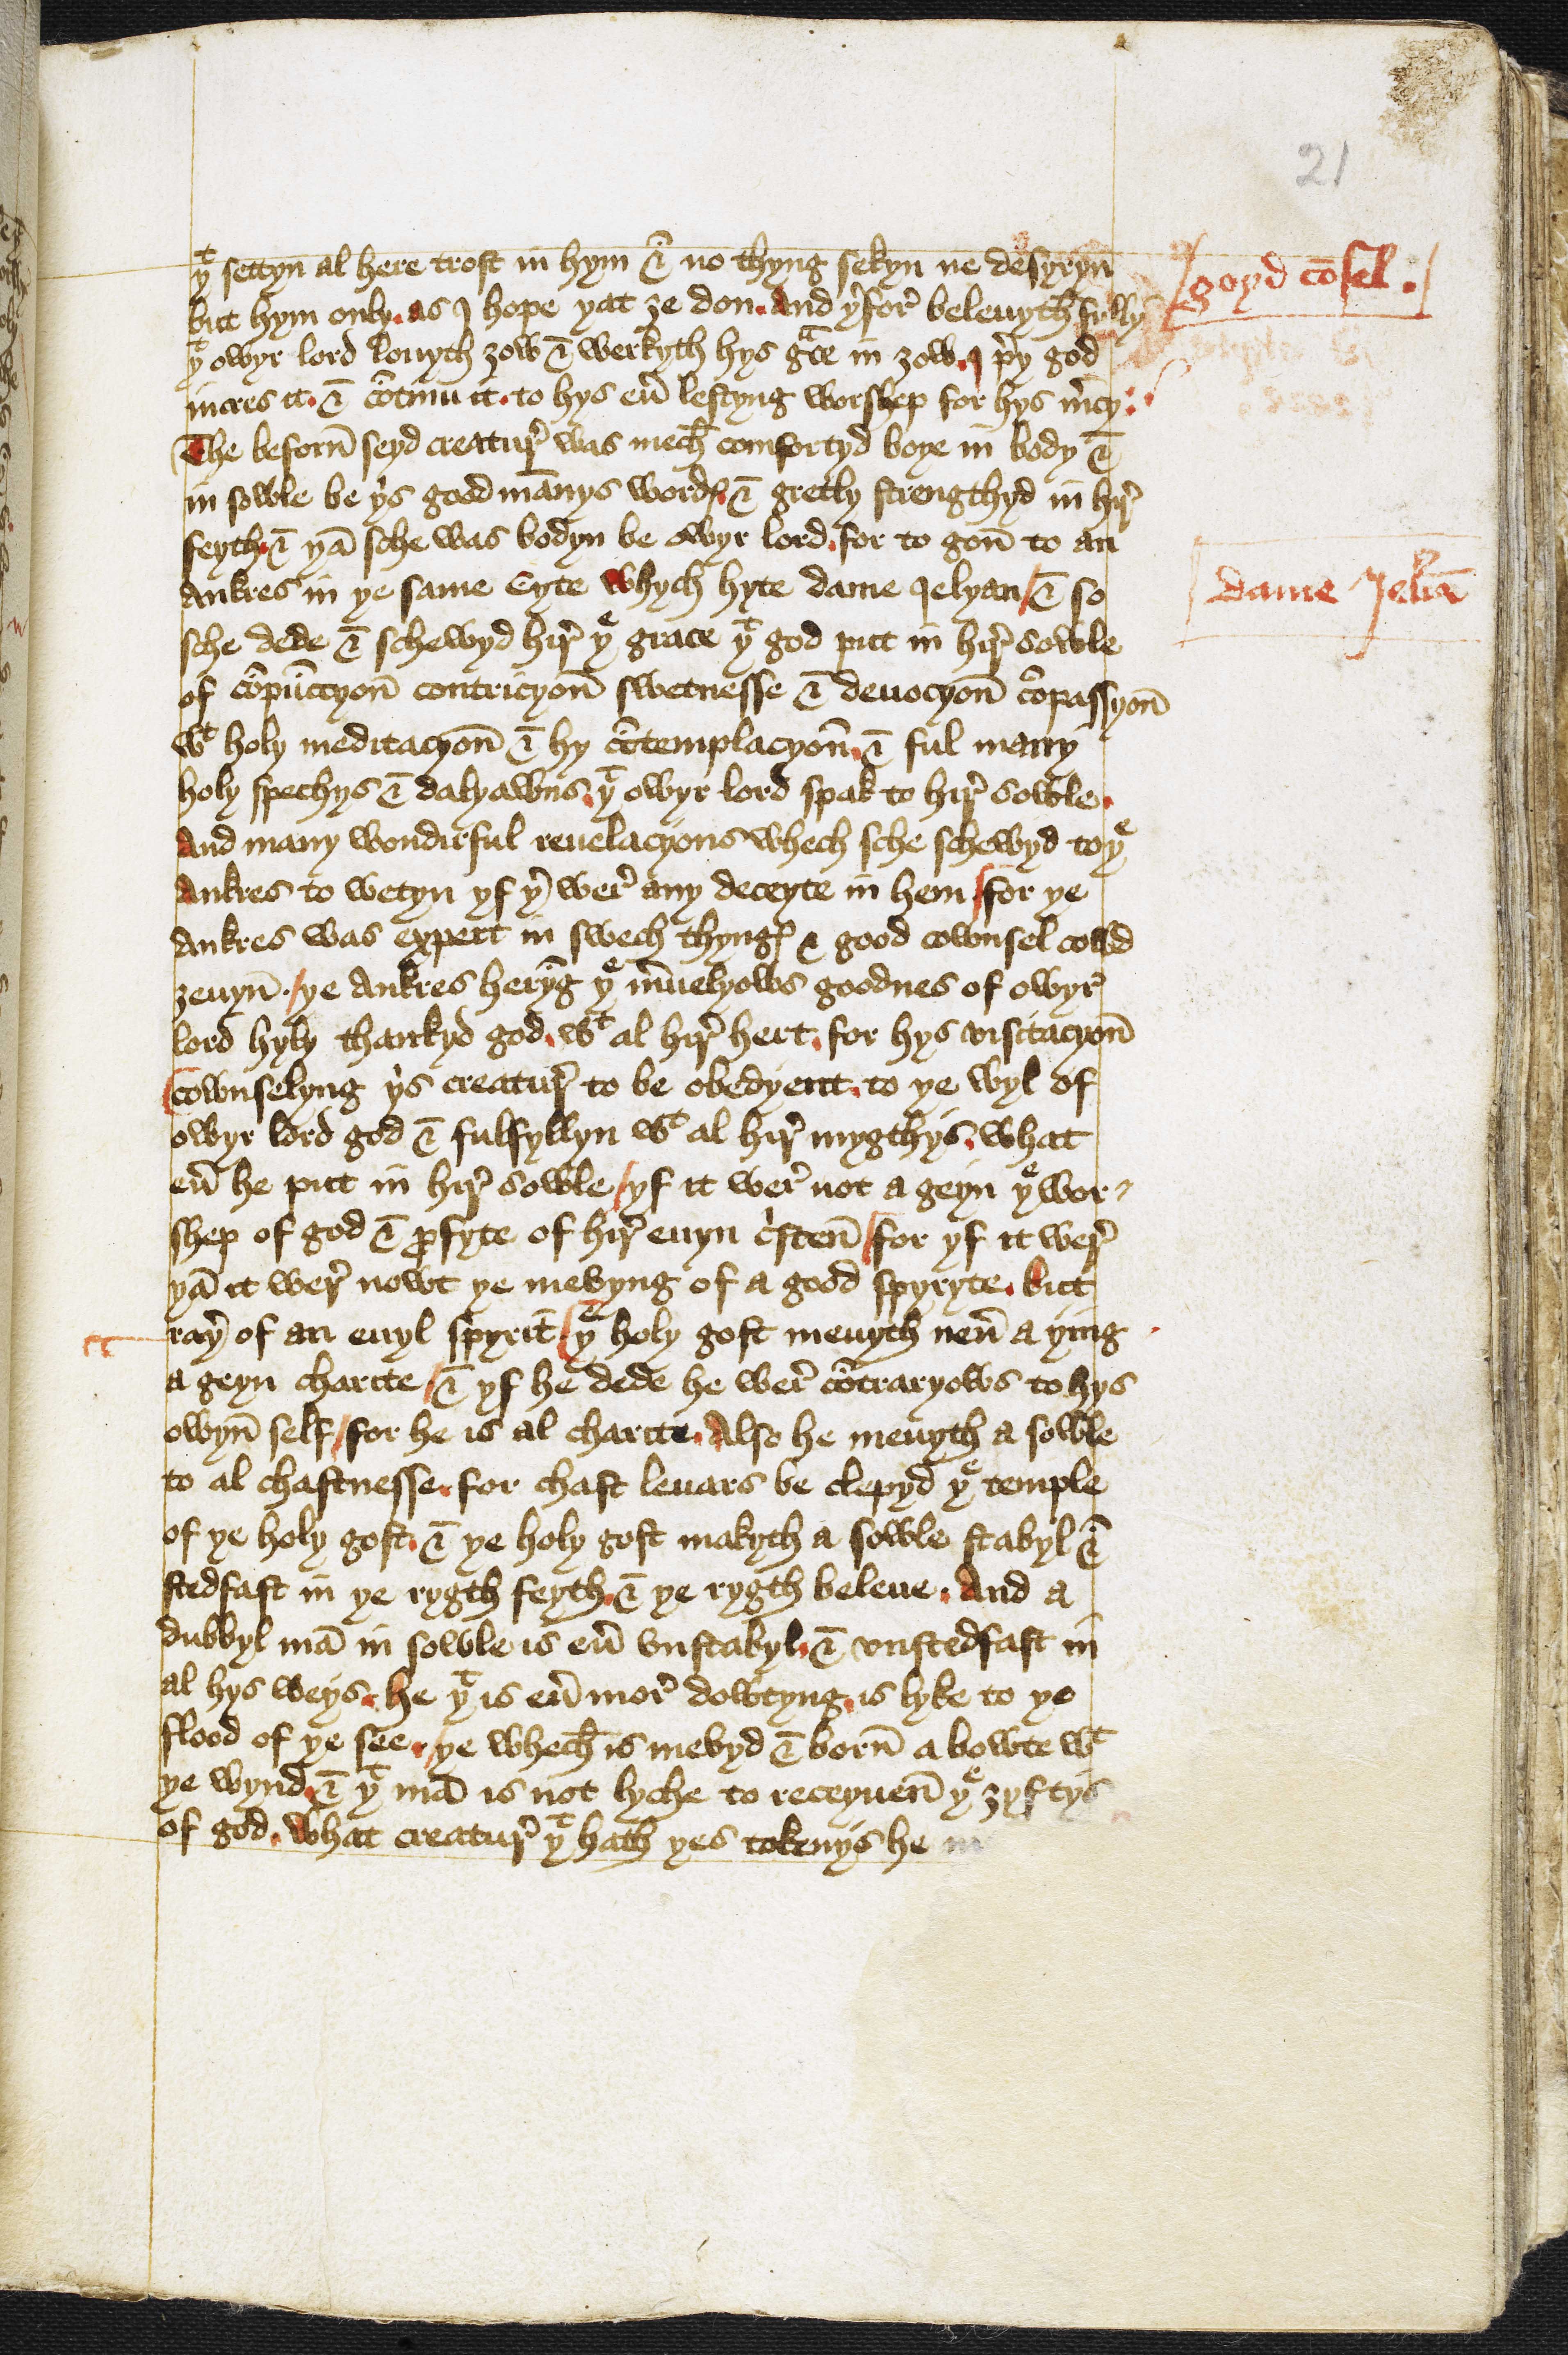 21
yᵗ settyn al here trost in hym & no thyng sekyn ne desyryn
goyd cōsel.
but hym only. as I hope yat ze don. And y'for' beleuyth fully
yᵗ owyr lord louyth zow & werkyth hys gᵃce in zow. I p'y god
incres it. & cōtinu it. to hys eu' lestyng worshep for hys m'cy.
The beforn̄ seyd creatur' was mech comfortyd boye in body &
in sowle be y's good mānys wordꝭ. & gretly strengthyd in hir'
feyth. & yā sche was bodyn be owyr lord. for to gon̄ to an
Ankres in ye same Cyte whych hyte dame Jelyan / & so
dame Jeliā
sche dede & schewyd hir' yᵉ grace yᵗ god put in hir' sowle
of cōpūccyon̄ contricyon̄ swetnesse & deuocyon̄ cōpassyon̄
wᵗ holy meditacyon̄ & hy cōtemplacyon̄. & ful many
holy spechys & dalyawns. yᵗ owyr lord spak to hir' sowle.
And many wondirful reuelacyons whech sche schewyd to yᵉ
Ankres to wetyn yf y' wer' any deceyte in hem / for ye
Ankres was expert in swech thyngꝭ & good cownsel cowd
zeuyn̄. / ye Ankres heryḡ yᵉ m'uelyows goodnes of owyr'
lord hyly thankyd god. wᵗ al hir' hert. for hys visitacyon̄
/ cownselyng y's creatur' to be obedyent. to ye wyl of
owyr lord god & fulfyllyn wᵗ al hir' mygthys. what
eu' he put in hir' sowle / yf it wer' not a geyn yᵉ wor-
shep of god & ꝓfyte of hir' euyn c'sten̄ / for yf it wer'
yā it wer' nowt ye mevyng of a good spyryte. but
ray' of an euyl spyrit / yᵉ holy gost meuyth neu' a ying
a geyn charite / & yf he dede he wer' cōtraryows to hys
owyn̄ self / for he is al charite. Also he meuyth a sowle
to al chastnesse. for chast leuars be clepyd yᵉ temple
of ye holy gost. & ye holy gost makyth a sowle stabyl &
stedfast in ye rygth feyth. & ye rygth beleue. And a
dubbyl mā in sowle is eu' vnstabyl. & vnstedfast in
al hys weys. he yᵗ is eu' mor' dowtyng. is lyke to ye
flood of ye see. / ye whech is mevyd & born̄ a bowte wᵗ
ye wynd. & yᵗ mā is not lyche to receyuen̄ yᵉ zyftys
of god. what creatur' yᵗ hath yes tokenys he